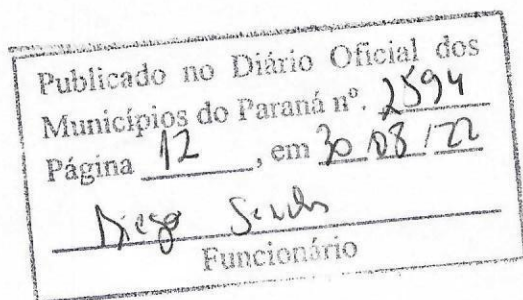 Publicado no Diário Oficial dos
Municípios do Paraná nº. 2594
Página 12, em 30/08/22
Diego
Funcionário